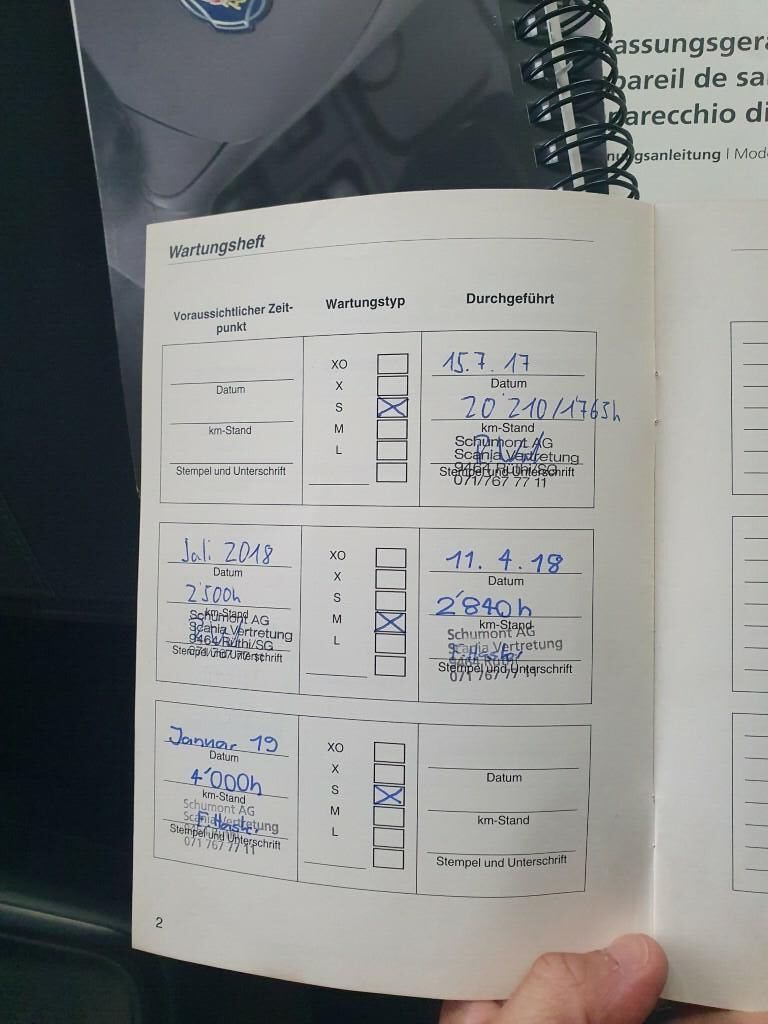 assungsger
pareil de sa
parecchio di
nungsanleitung | Mod
Wartungsheft
Voraussichtlicher Zeit-
punkt
Wartungstyp
Durchgeführt
Datum
km-Stand
Stempel und Unterschrift
XO
X
S
M
L
15.7.17
Datum
20'210/1763h
km-Stand
Schumont AG
Scania Vertretung
Stempel und Unterschrift
9464 Rüthi/SG
071/767 77 11
Juli 2018
Datum
2'500h
km-Stand
Schumont AG
Scania Vertretung
9464/Rüthi/SG
Stempel und Unterschrift
071/767 77 11
XO
X
S
M
L
11.4.18
Datum
2'840h
km-Stand
Schumont AG
Scania Vertretung
9464 Rüthi
Stempel und Unterschrift
071 767 77 11
Januar 19
Datum
4'000h
km-Stand
Schumont AG
Scania Vertretung
Stempel und Unterschrift
071 767 77 11
XO
X
S
M
L
Datum
km-Stand
Stempel und Unterschrift
2